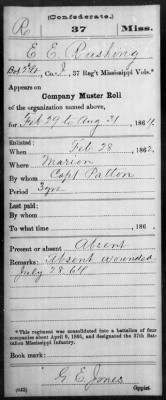 (Confederate.)
R 37 Miss.
E E Rushing
Co. I, 37 Reg't Mississippi Vols.*
Appears on
Company Muster Roll
of the organization named above,
for Feb 29 to Aug 31, 1864.
Enlisted:
When Feb 28, 1862.
Where Marion
By whom Capt Patton
Period 3 yrs
Last paid:
By whom
To what time , 186 .
Present or absent Absent
Remarks: Absent wounded
July 28. 64
*This regiment was consolidated into a battalion of four
companies about April 9, 1865, and designated the 37th Bat-
talion Mississippi Infantry.
Book mark:
G E Jones
(642) Copyist.